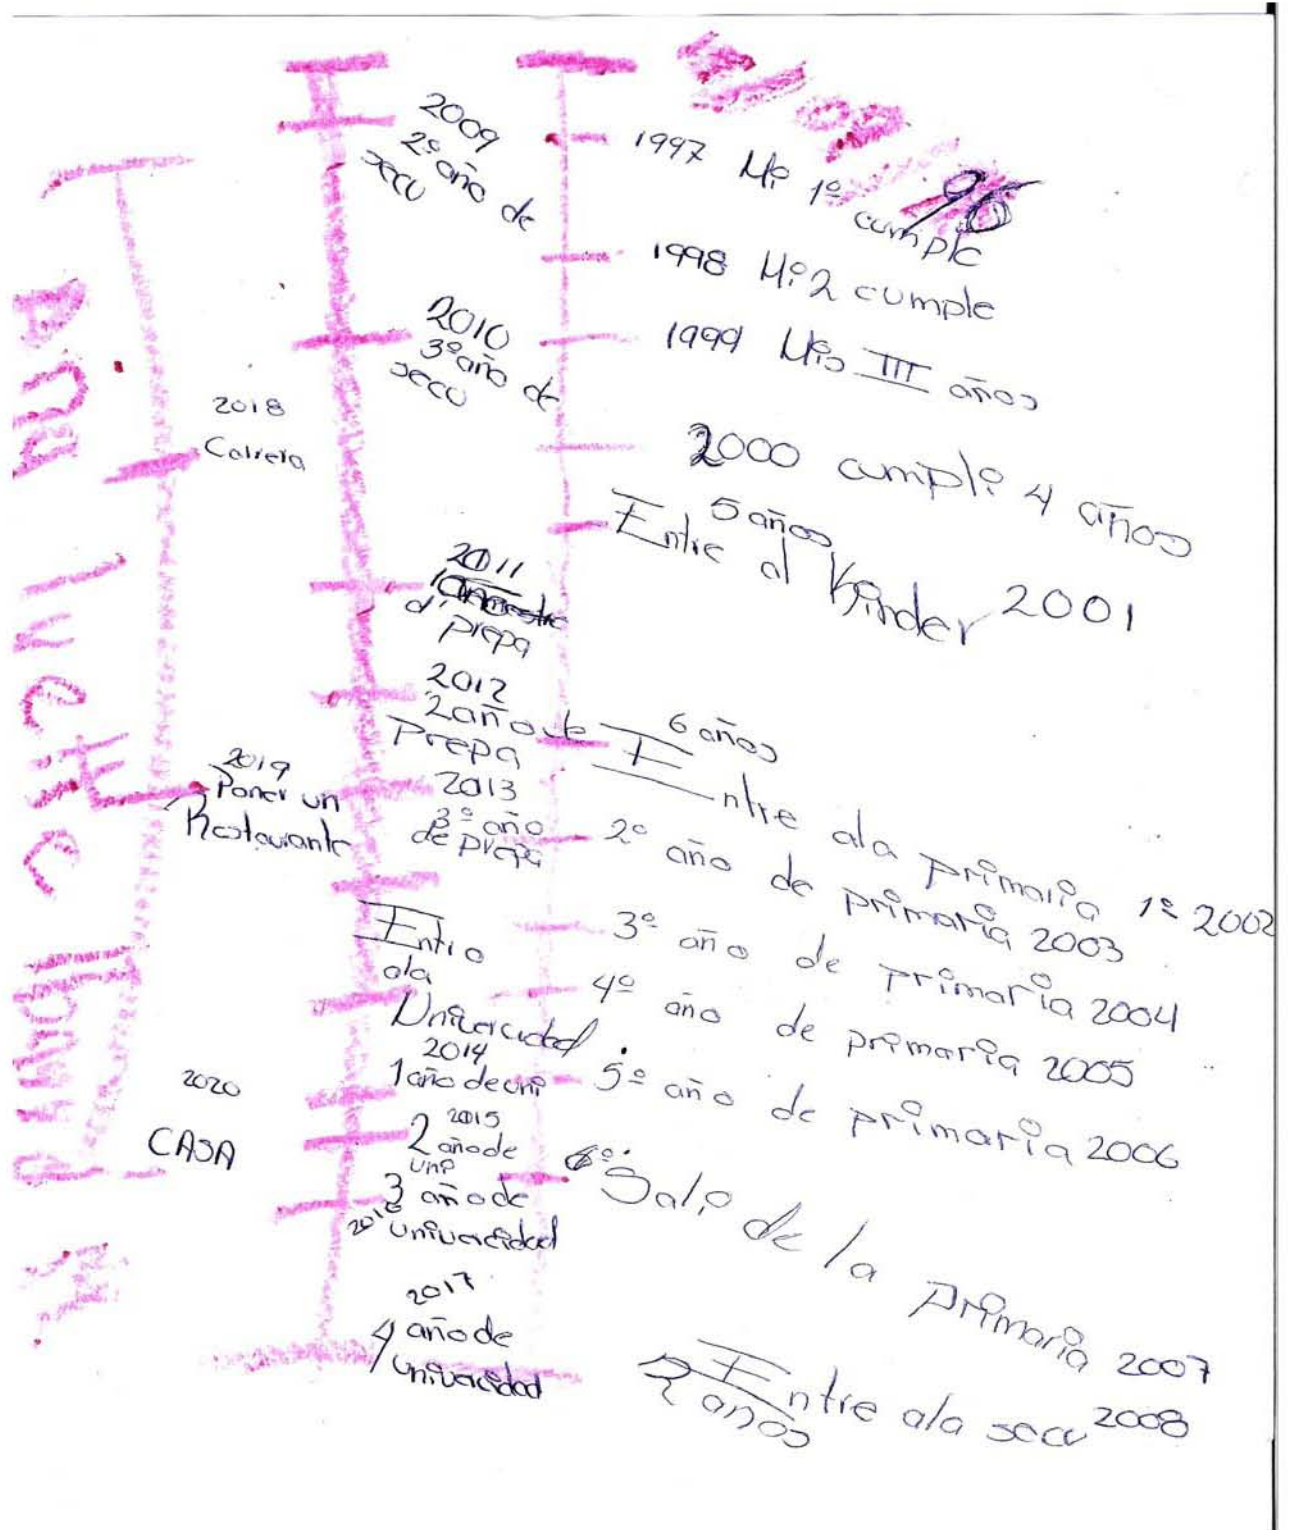 96
1997 Mi 1º
cumple
1998 Mi 2 cumple
1999 Mis III años
2000 cumpli 4 años
5 años
Entre al Kinder 2001
6 años
Entre ala primaria 1º 2002
2º año de primaria 2003
3º año de primaria 2004
4º año de primaria 2005
5º año de primaria 2006
6º Sali de la primaria 2007
Entre ala secu 2008
años
2009
2º año de
secu
2010
3º año de
secu
2011
prepa
2012
2 año de
Prepa
2013
3º año
de prepa
Entro
ala
Univercidad
2014
1 año de uni
2015
2 año de
uni
3 año de
2016 univercidad
2017
4 año de
univercidad
2018
Carrera
2019
Poner un
Restaurante
2020
CASA